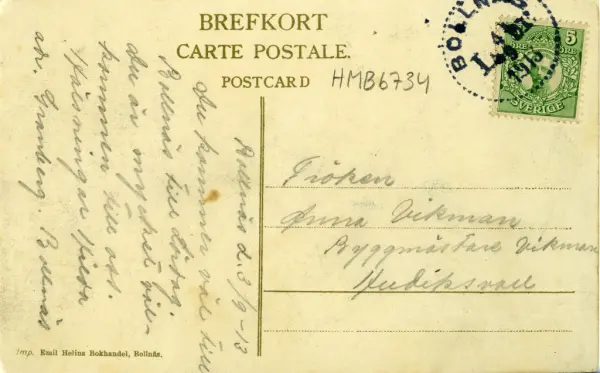 BREFKORT
CARTE POSTALE.
POSTCARD
HMB6734
BOLLNÄS
1913
5
ÖRE
SVERIGE
Bollnäs d. 3/9-13
Du kommer väl till
Bollnäs till lördag.
du är mycket väl-
kommen till oss.
Hälsningar Hilda
adr. Granberg. Bollnäs
Fröken
Anna Vikman
Byggmästare Vikman
Hudiksvall
Imp. Emil Helins Bokhandel, Bollnäs.